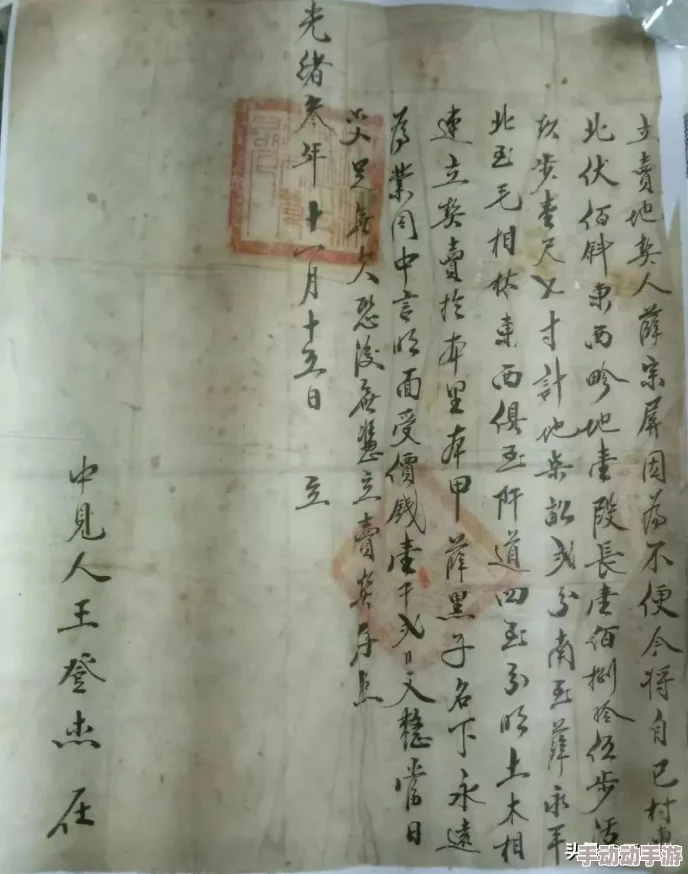 立賣地契人薛宗屏因為不便今將自己村
北伏佰斜東西畛地壹段長壹佰捌拾伍步活
玖步壹尺乂寸計地柒畝弍分南至薛永平
北至毛相林東西俱至阡道四至分明土木相
連立契賣於本里本甲薛黑子名下永遠
為業同中言明面受價錢壹千弍文整當日
交足無欠恐後無憑立賣契存照
光緒叁年十一月十五日 立
中見人王登杰在
手动动手游